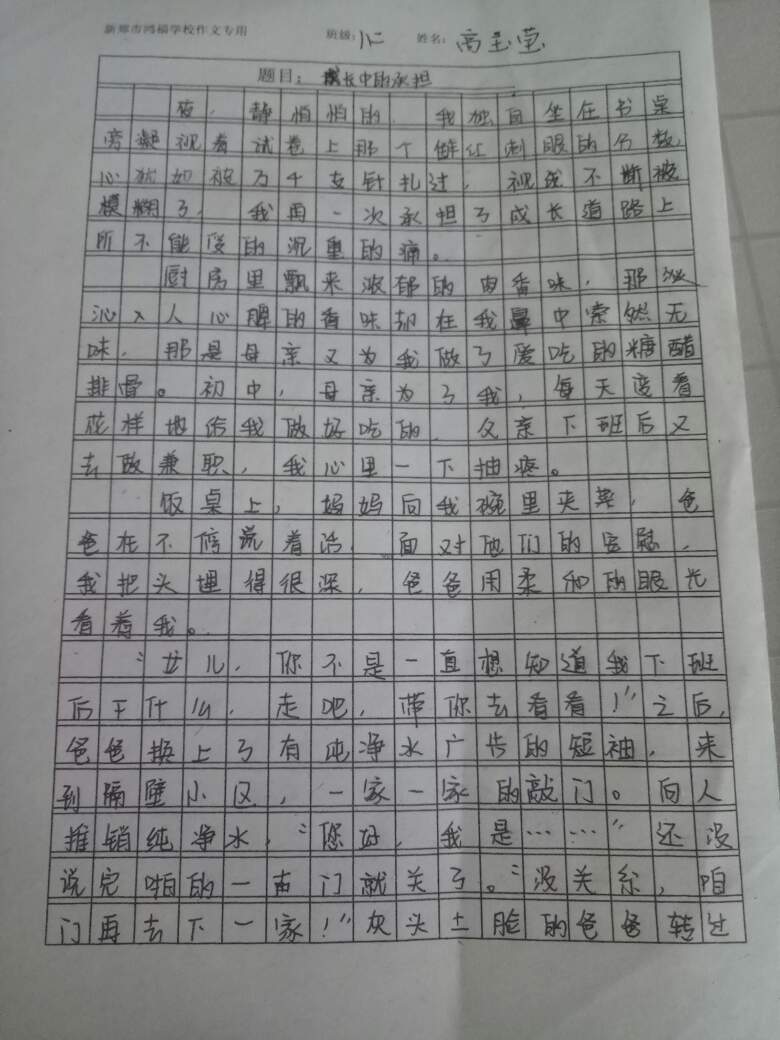 新郑市鸿福学校作文专用 班级：八二 姓名：高玉莹
题目：成长中的承担
夜，静悄悄的，我独自坐在书桌
旁凝视着试卷上那个鲜红刺眼的分数，
心犹如被万千支针扎过，视线不断被
模糊了，我再一次承担了成长道路上
所不能承受的沉重的痛。
厨房里飘来浓郁的肉香味，那
沁入人心脾的香味却在我鼻中索然无
味，那是母亲又为我做了爱吃的糖醋
排骨。初中，母亲为了我，每天变着
花样地给我做好吃的，父亲下班后又
去做兼职，我心里一下抽疼。
饭桌上，妈妈向我碗里夹菜，爸
爸在不停说着话，面对他们的安慰，
我把头埋得很深，爸爸用柔和的眼光
看着我。
“女儿，你不是一直想知道我下班
后干什么，走吧，带你去看看！”之后，
爸爸换上了有纯净水广告的短袖，来
到隔壁小区，一家一家的敲门。向人
推销纯净水，“你好，我是……”还没
说完啪的一声门就关了。“没关系，咱
们再去下一家！”灰头土脸的爸爸转过